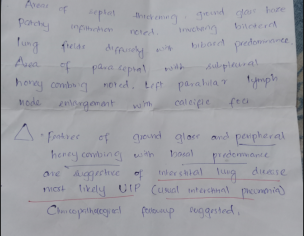 Areas of septal thickening, ground glass haze
Patchy distribution noted, involving bilateral
lung fields diffusely with bibasal predominance.
Area of paraseptal with subpleural
honey combing noted. Left parahilar lymph
node enlargement with calcific foci
Δ - Features of ground glass and peripheral
honeycombing with basal predominance
are suggestive of interstitial lung disease
most likely UIP (usual interstitial pneumonia)
Clinicopathological followup suggested.